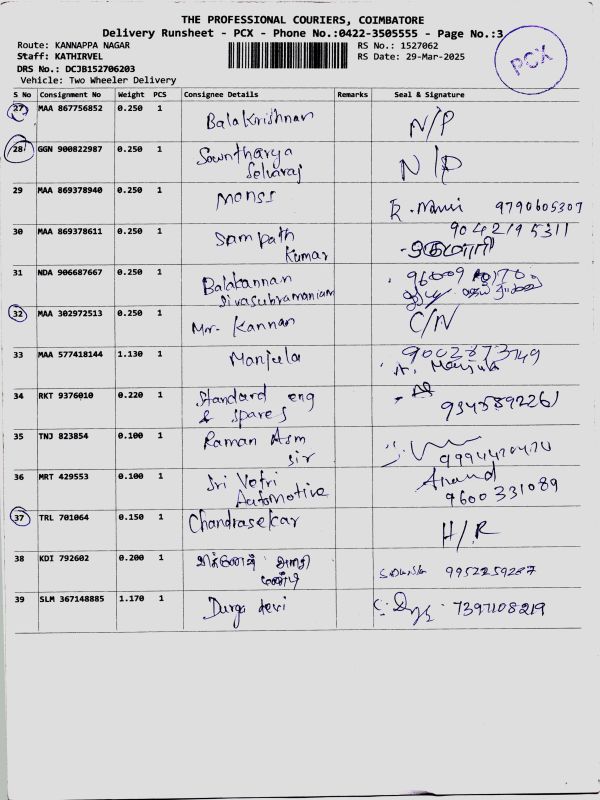 THE PROFESSIONAL COURIERS, COIMBATORE
Delivery Runsheet - PCX - Phone No.:0422-3505555 - Page No.:3
Route: KANNAPPA NAGAR
RS No.: 1527062
Staff: KATHIRVEL
RS Date: 29-Mar-2025
DRS No.: DCJB152706203
Vehicle: Two Wheeler Delivery
PCX
S No Consignment No Weight PCS Consignee Details Remarks Seal & Signature
27 MAA 867756852 0.250 1 Balakrishnan N/P
28 GGN 900822987 0.250 1 Sowntharya
Selvaraj N/P
29 MAA 869378940 0.250 1 Monsi 9790605307
30 MAA 869378611 0.250 1 Sampath
Kumar 9042195311
31 NDA 906687667 0.250 1 Balakannan
Sivasubramaniam
32 MAA 302972513 0.250 1 Mr. Kannan C/N
33 MAA 577418144 1.130 1 Manjula 9002873749
Manjula
34 RKT 9376010 0.220 1 Standard eng
& spares 9345892261
35 TNJ 823854 0.100 1 Raman Asm
sir
36 MRT 429553 0.100 1 Sri Vetri
Automotive Anand
9600331089
37 TRL 701064 0.150 1 Chandrasekar H/R
38 KDI 792602 0.200 1 9952259287
39 SLM 367148885 1.170 1 Durga devi 7397108219